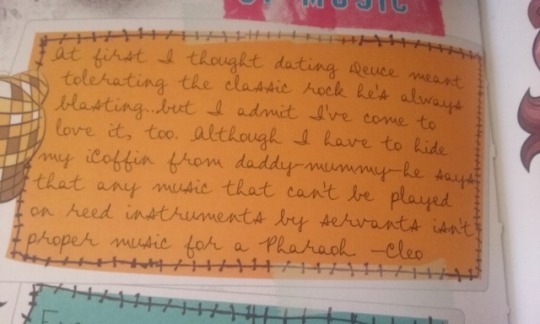 OF MUSIC
At first I thought dating Deuce meant
tolerating the classic rock he's always
blasting...but I admit I've come to
love it, too. Although I have to hide
my iCoffin from daddy-mummy-he says
that any music that can't be played
on reed instruments by servants isn't
proper music for a Pharaoh -Cleo